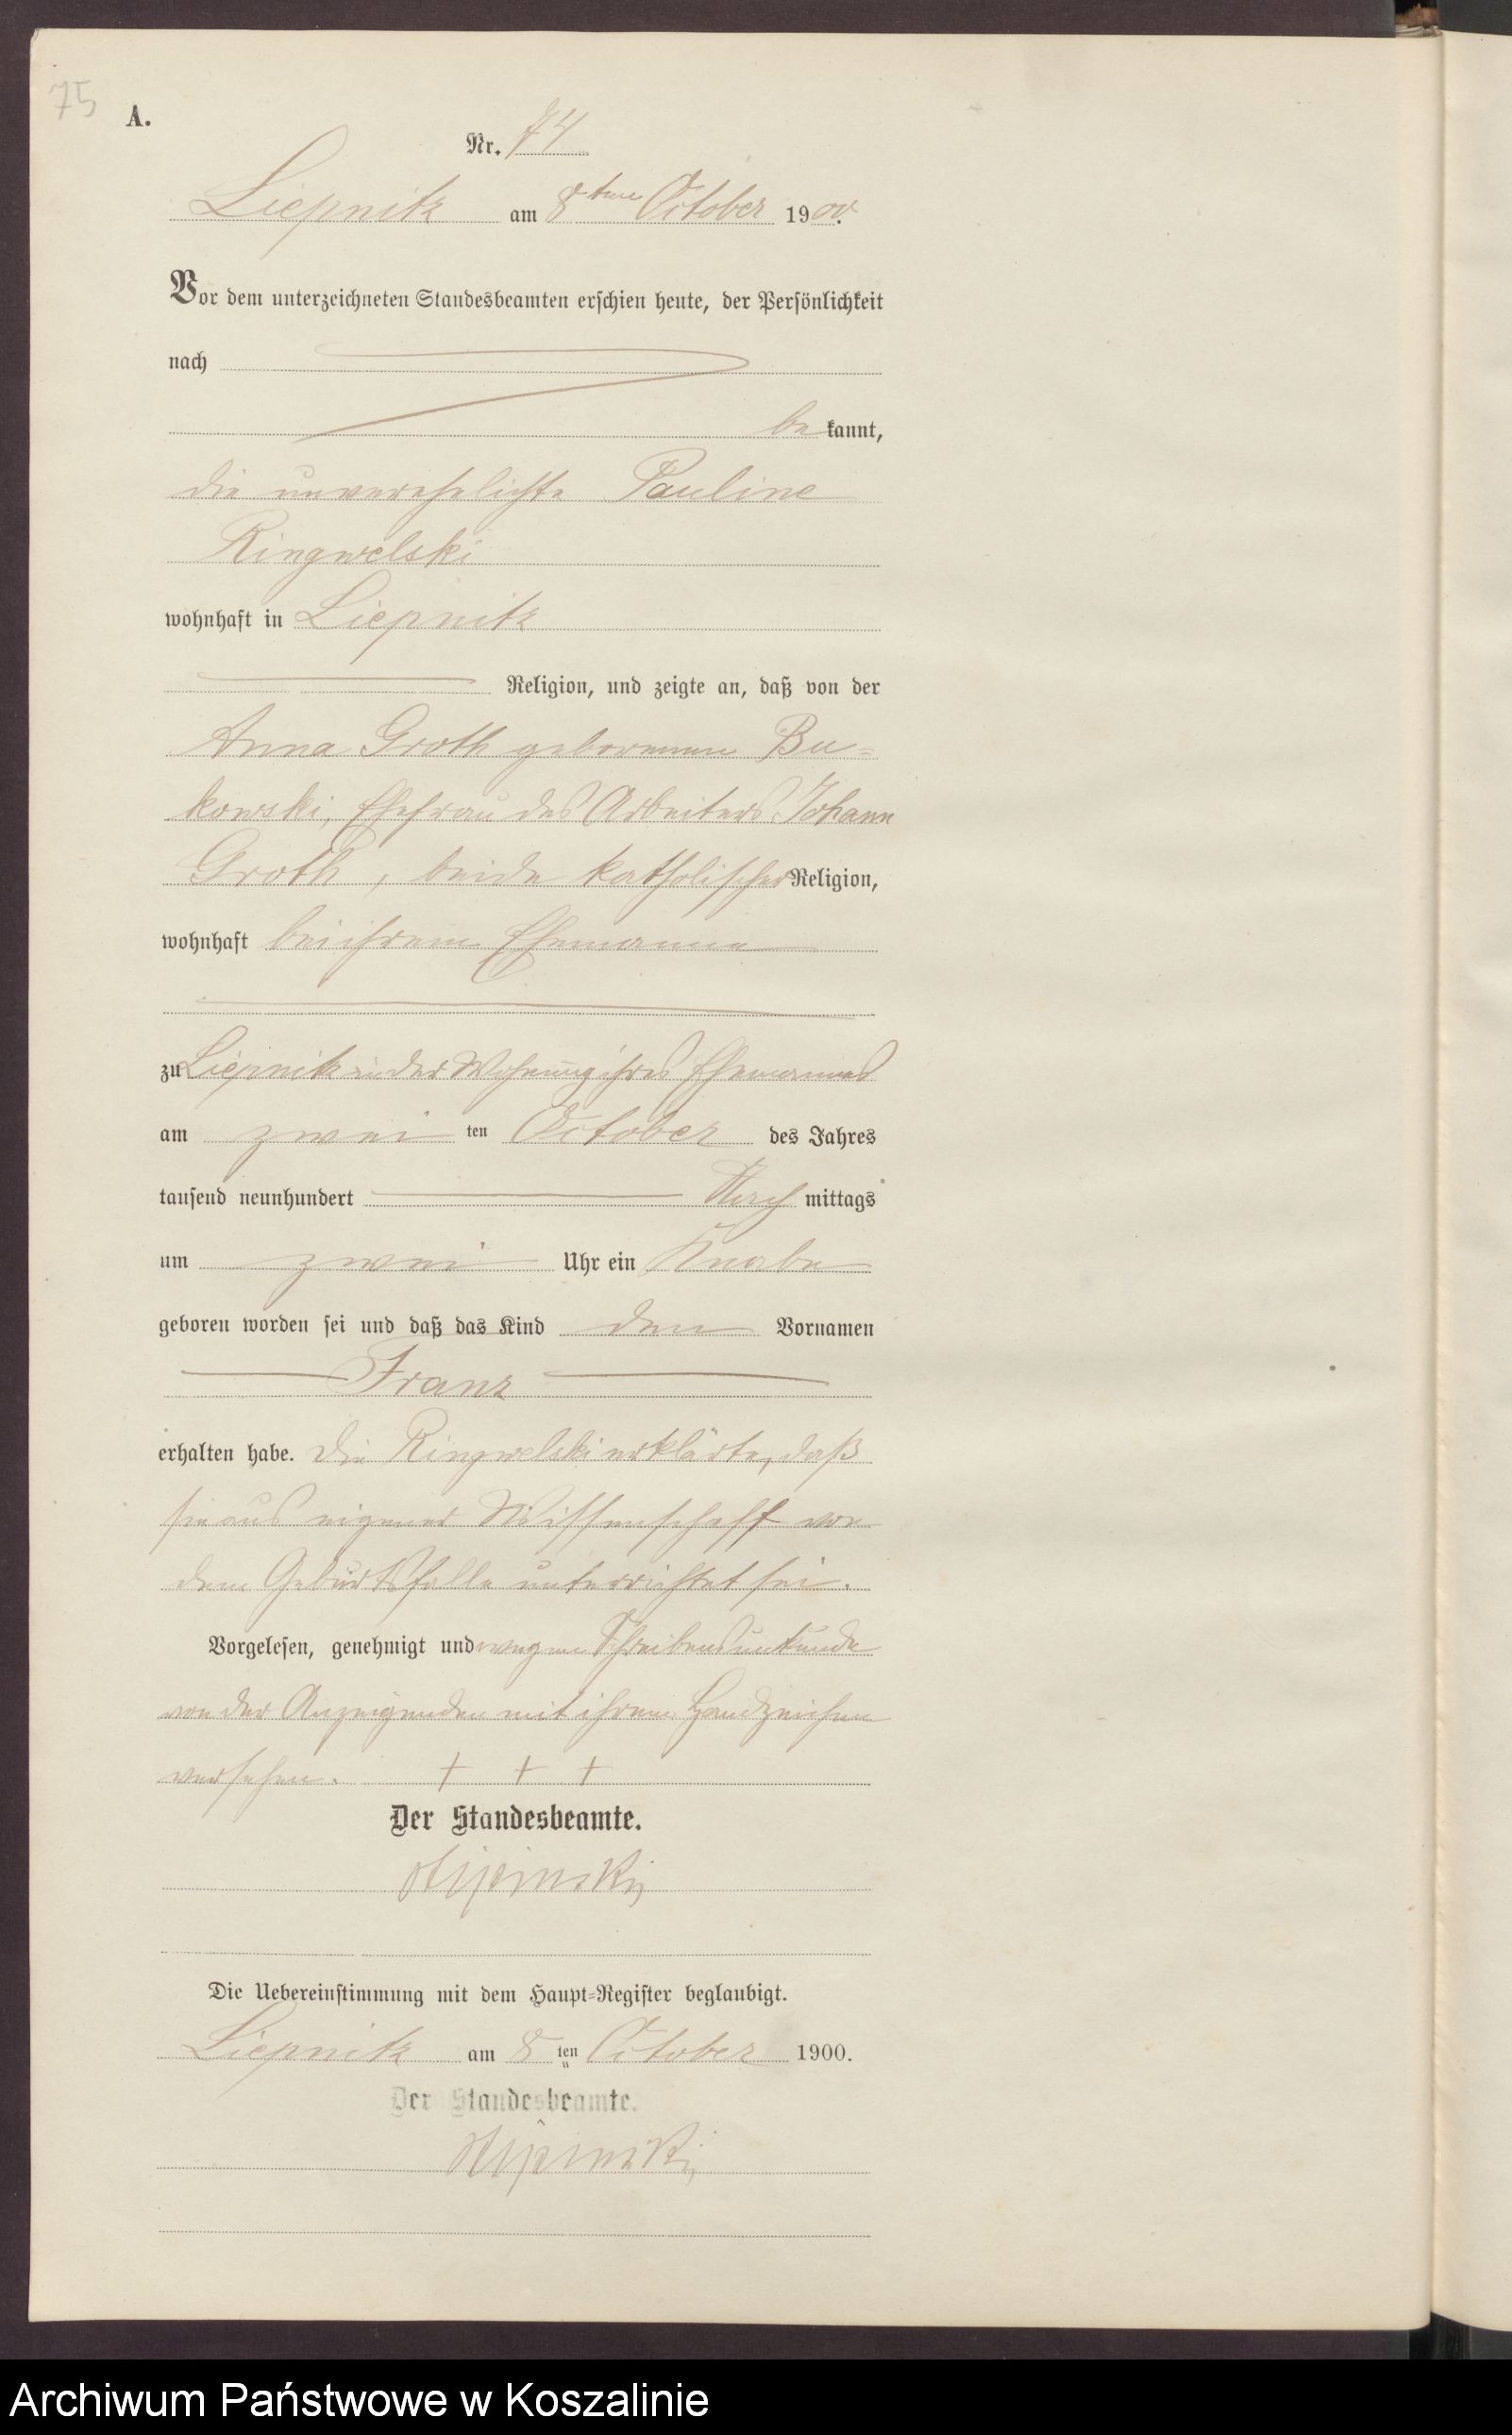 75
A.
Nr. 74
Liepnitz am 8ten October 1900.
Vor dem unterzeichneten Standesbeamten erschien heute, der Persönlichkeit
nach
bekannt,
die unverehelichte Pauline
Ringwelski
wohnhaft in Liepnitz
Religion, und zeigte an, daß von der
Anna Groth geborenen Bu=
kowski, Ehefrau des Arbeiters Johann
Groth, beide katholischer Religion,
wohnhaft bei ihrem Ehemanne
zu Liepnitz in der Wohnung ihres Ehemannes
am zwei ten October des Jahres
tausend neunhundert Nach mittags
um zwei Uhr ein Knabe
geboren worden sei und daß das Kind den Vornamen
Franz
erhalten habe. Die Ringwelski erklärte, daß
sie aus eigener Wissenschaft von
dem Geburtsfalle unterrichtet sei.
Vorgelesen, genehmigt und wegen Schreibensunkunde
von der Anzeigenden mit ihrem Handzeichen
versehen. + + +
Der Standesbeamte.
Die Uebereinstimmung mit dem Haupt=Register beglaubigt.
Liepnitz am 8 ten October 1900.
Der Standesbeamte.
Archiwum Państwowe w Koszalinie